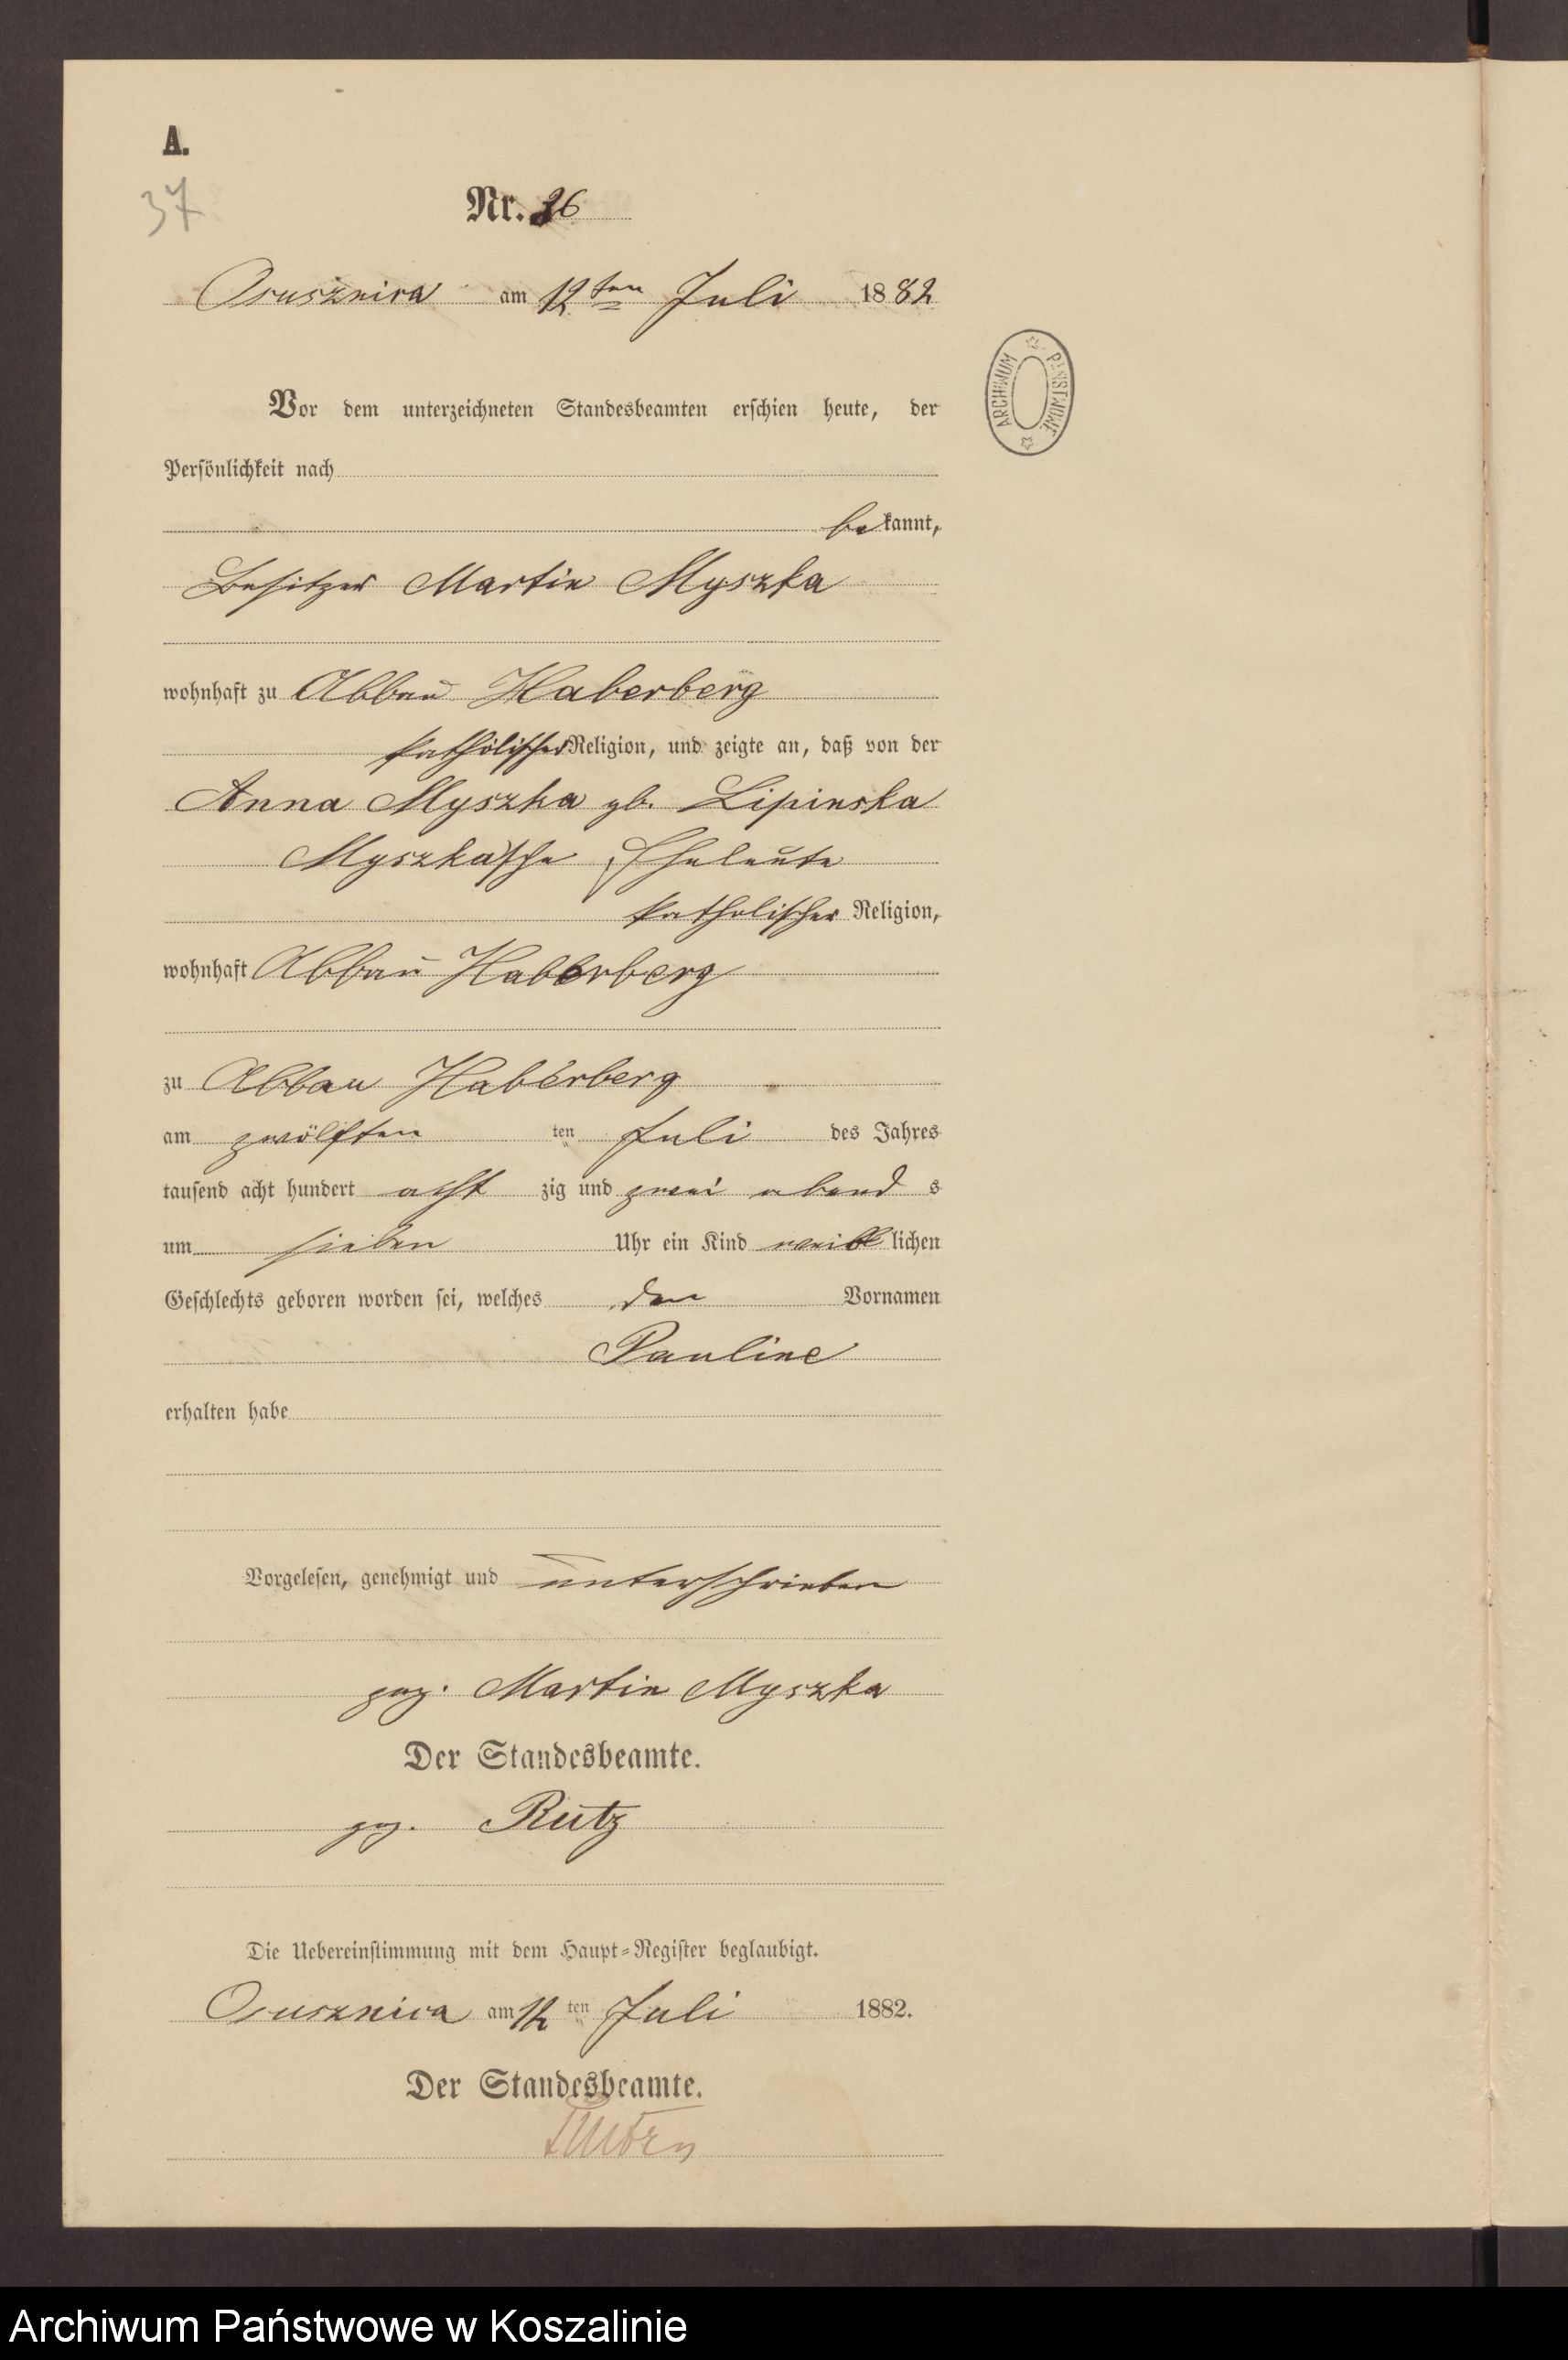 A.
37
Nr. 36
Osusznica am 12ten Juli 1882
Vor dem unterzeichneten Standesbeamten erschien heute, der
Persönlichkeit nach
bekannt,
Besitzer Martin Myszka
wohnhaft zu Abbau Haberberg
katholischer Religion, und zeigte an, daß von der
Anna Myszka gb. Lipinska
Myszka'sche Eheleute
katholischer Religion,
wohnhaft Abbau Haberberg
zu Abbau Haberberg
am zwölften ten Juli des Jahres
tausend acht hundert acht zig und zwei abend s
um sieben Uhr ein Kind weiblichen
Geschlechts geboren worden sei, welches den Vornamen
Pauline
erhalten habe
Vorgelesen, genehmigt und unterschrieben
gez. Martin Myszka
Der Standesbeamte.
gez. Rutz
Die Uebereinstimmung mit dem Haupt=Register beglaubigt.
Osusznica am 12 ten Juli 1882.
Der Standesbeamte.
ARCHIWUM PAŃSTWOWE
Archiwum Państwowe w Koszalinie